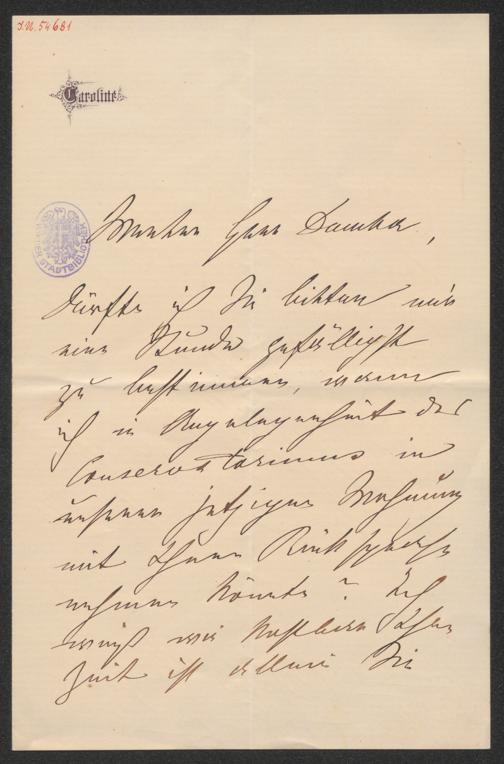 J.N. 54681
Caroline
Werther Herr Dumba,
Dürfte ich Sie bitten mir
eine Stunde gefälligst
zu bestimmen, wann
ich in Angelegenheit des
Conservatoriums in
unserer jetzigen Wohnung
mit Ihnen Rücksprache
nehmen könnte? Ich
weiß wie kostbar Ihre
Zeit ist allein Sie